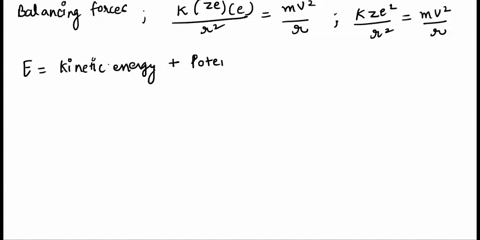 Balancing forces ; K(ze)(e)/r² = mv²/r ; Kze²/r² = mv²/r
E = Kinetic energy + Poter